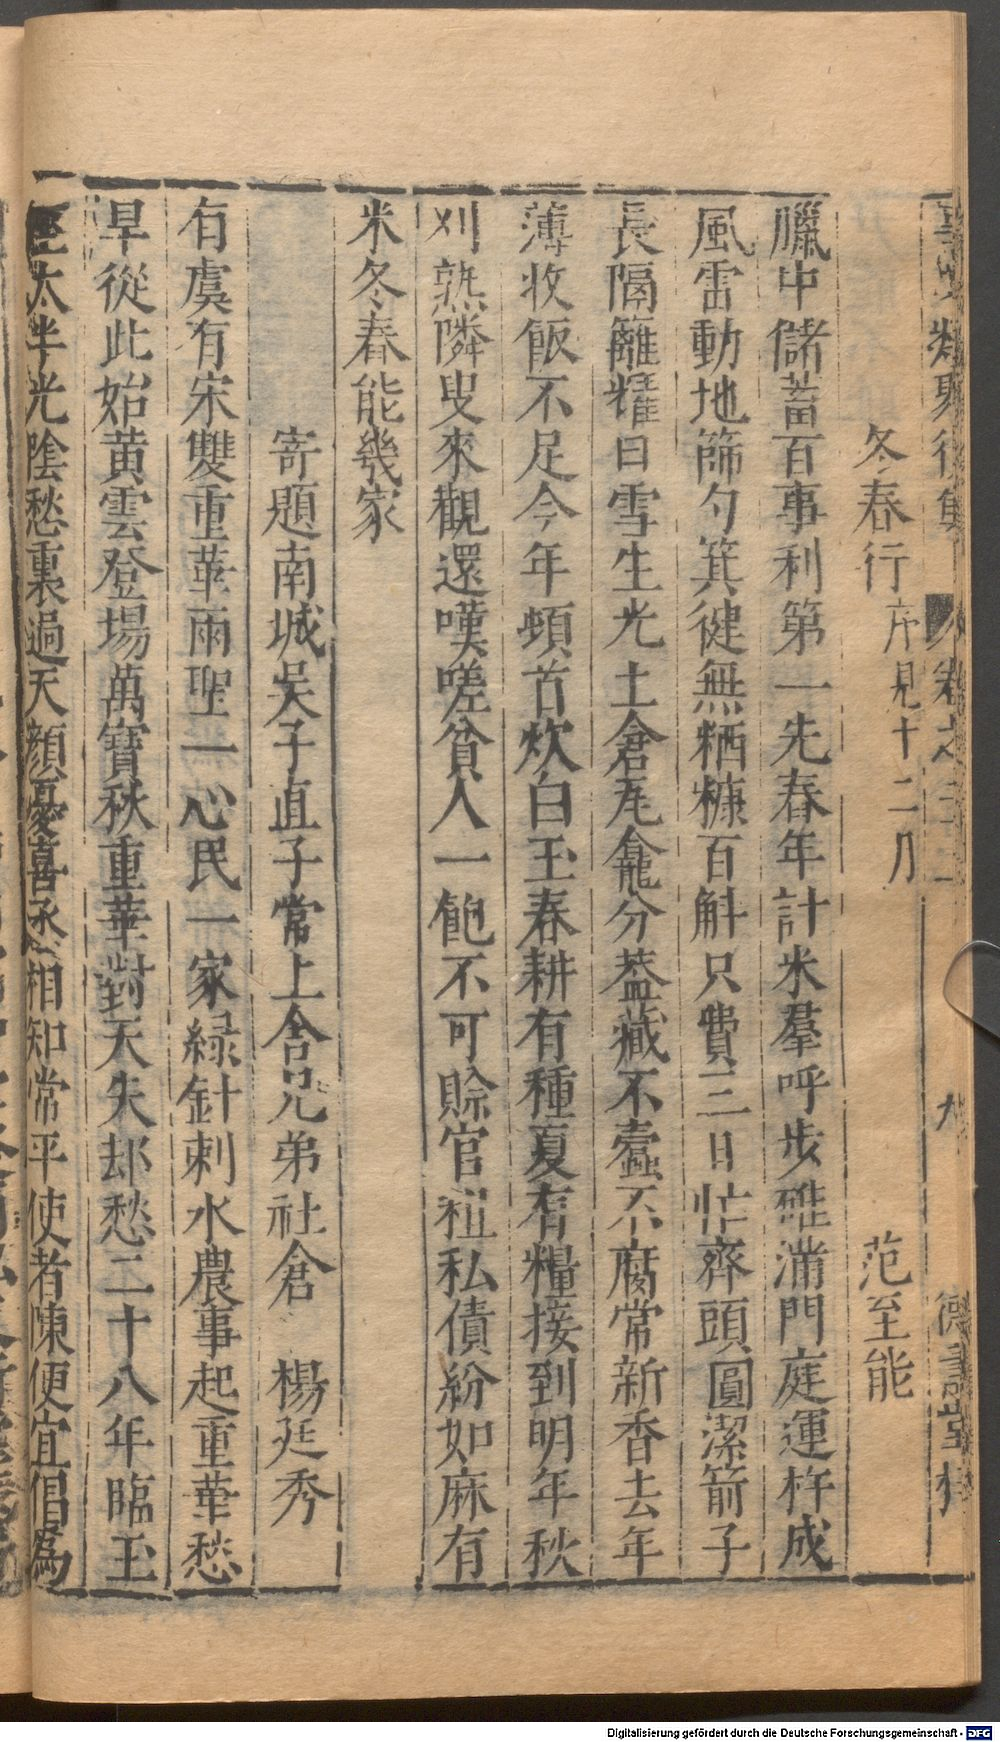 事文類聚後集 卷之二十二 九 德壽堂梓
冬舂行 序見十二月 范至能
臘中儲蓄百事利第一先舂年計米羣呼步碓滿門庭運杵成
風雷動地篩勻箕健無粞糠百斛只費三日忙齊頭圓潔箭子
長隔籬耀日雪生光土倉瓦龕分蓋藏不蠹不腐常新香去年
薄收飯不足今年頓首炊白玉春耕有種夏有糧接到明年秋
刈熟隣叟來觀還嘆嗟貧人一飽不可賒官租私債紛如麻有
米冬舂能幾家
寄題南城吳子直子常上舍兄弟社倉 楊廷秀
有虞有宋雙重華兩聖一心民一家緑針刺水農事起重華愁
旱從此始黄雲登場萬寶秋重華對天失却愁二十八年臨玉
座太半光陰愁裏過天顏憂喜丞相知常平使者陳便宜倡爲
Digitalisierung gefördert durch die Deutsche Forschungsgemeinschaft - DFG